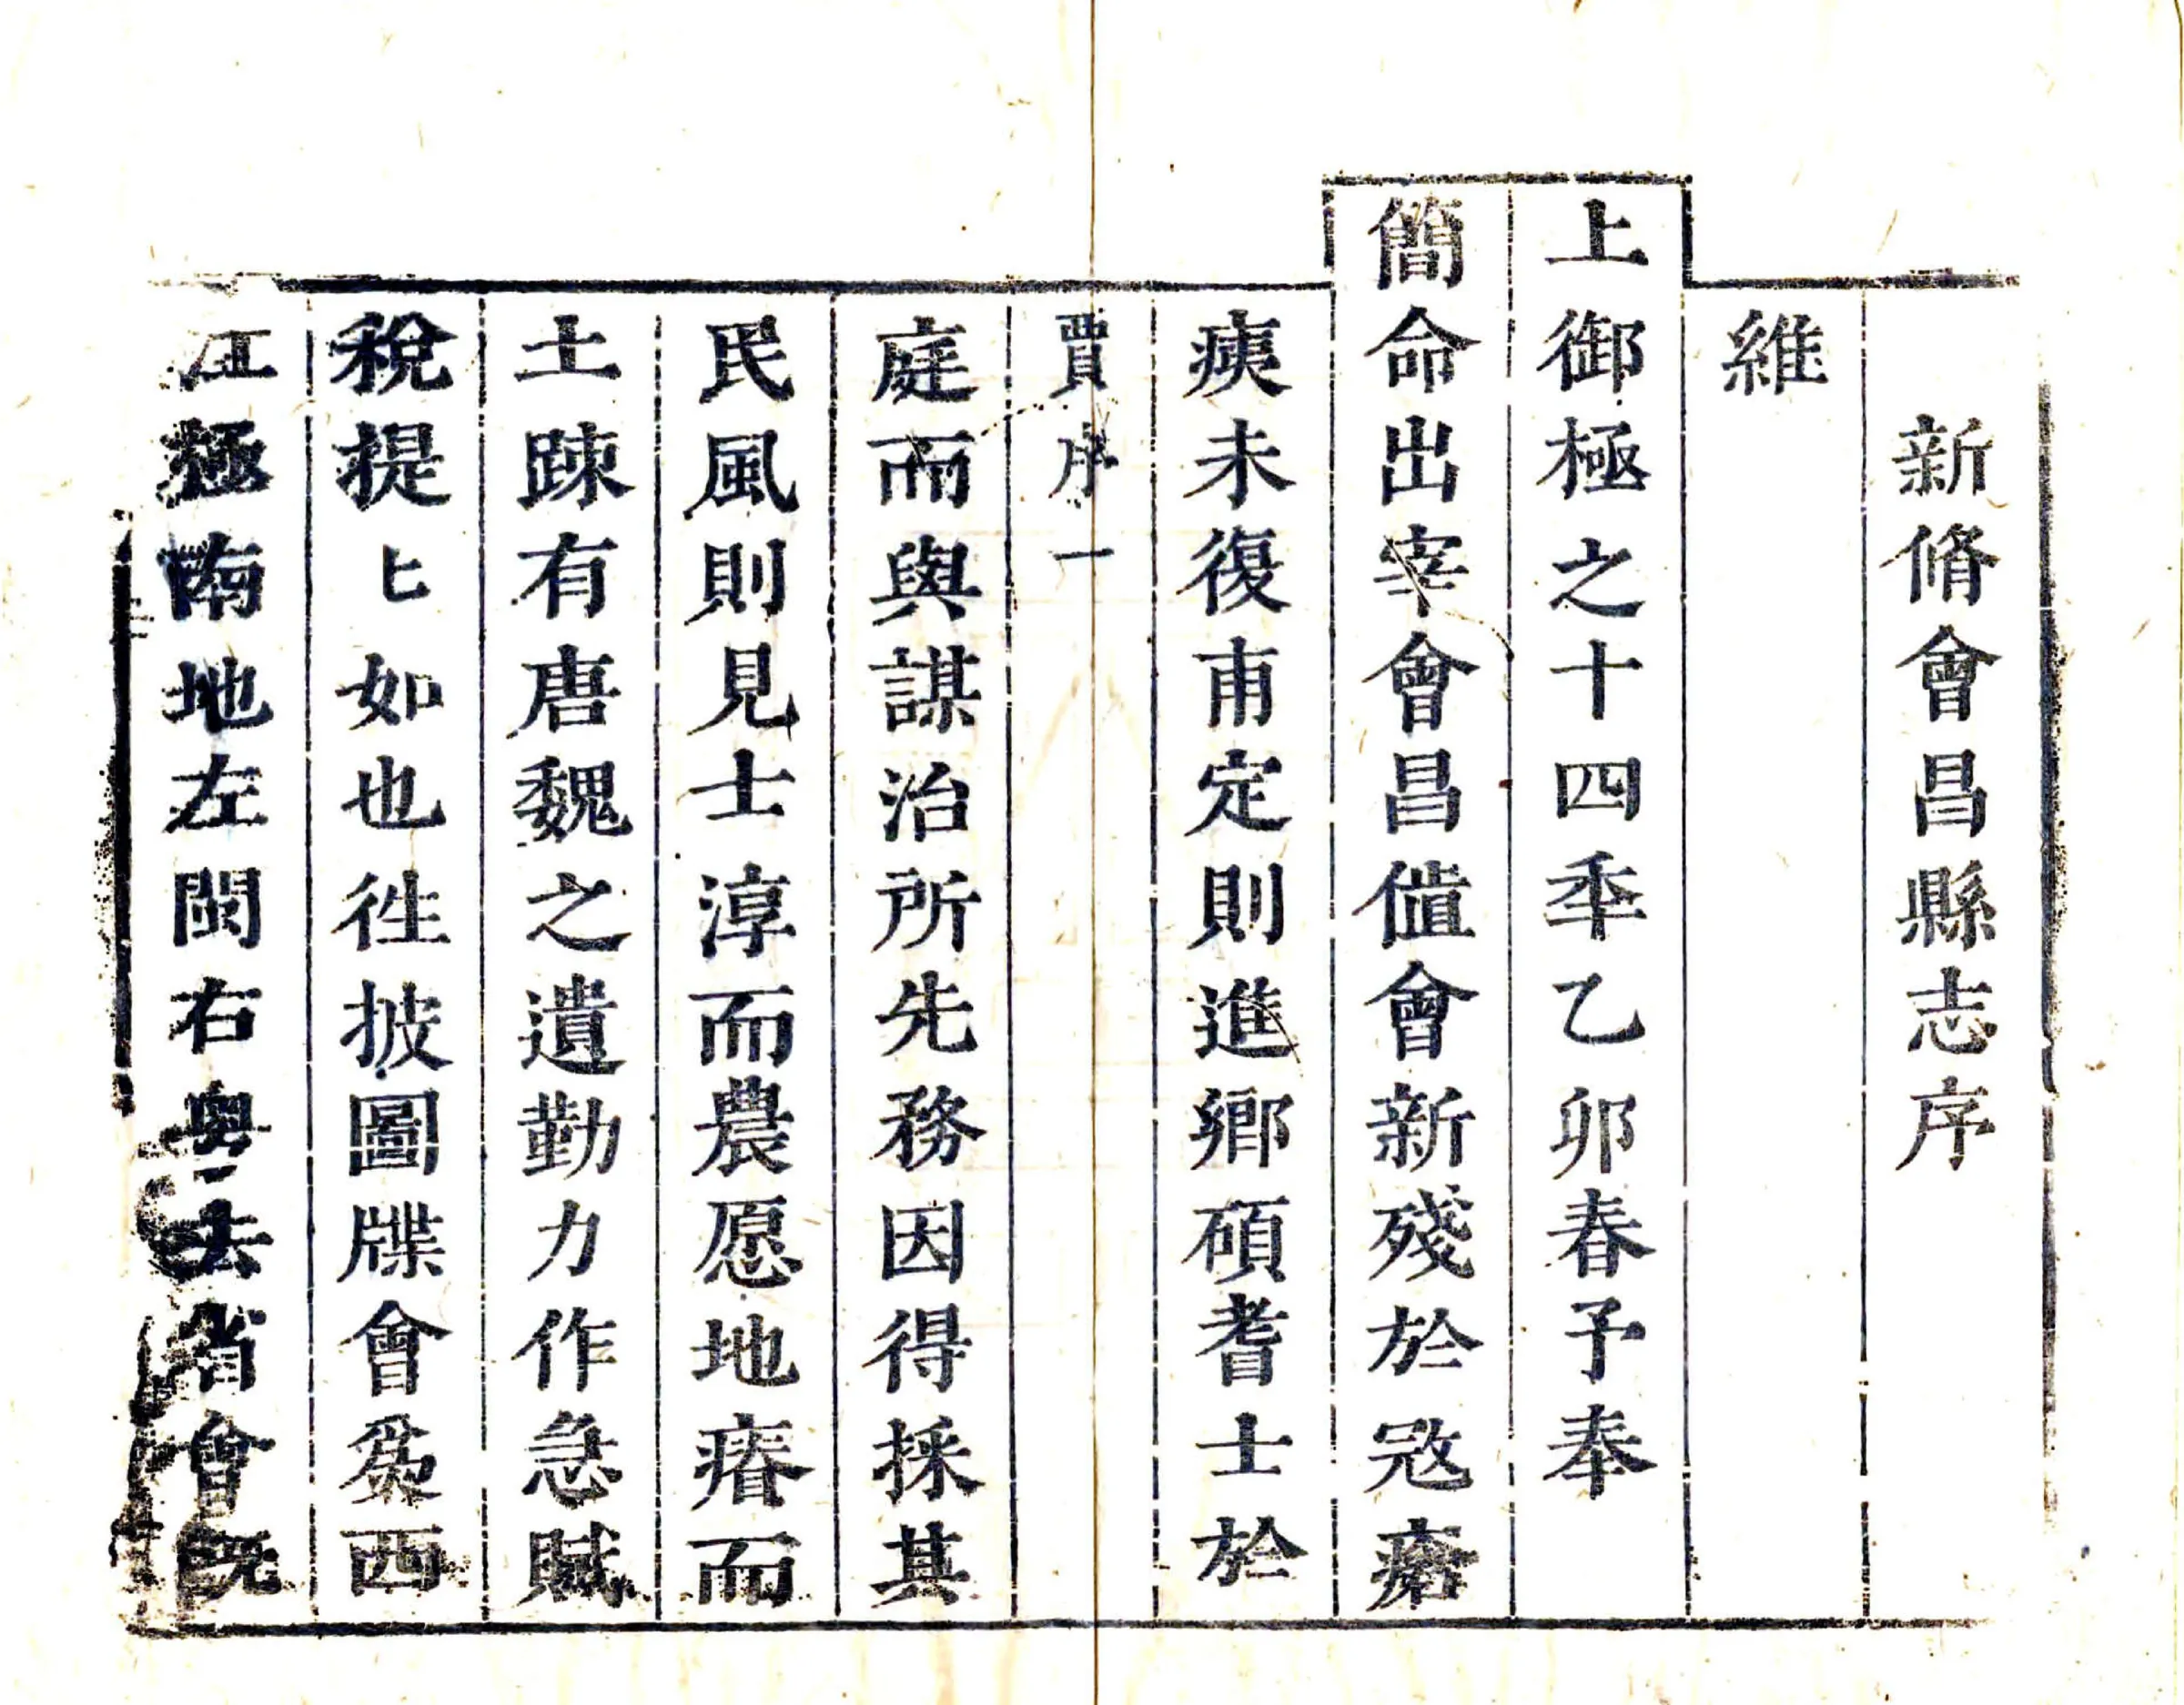 新脩會昌縣志序
維
上御極之十四秊乙卯春予奉
簡命出宰會昌値會新殘於寇瘡
痍未復甫定則進鄉碩耆士於
賈序一
庭而與謀治所先務因得採其
民風則見士淳而農愿地瘠而
土踈有唐魏之遺勤力作急賦
稅提匕如也徃披圖牒會爲西
江極南地左閩右粤去省會旣